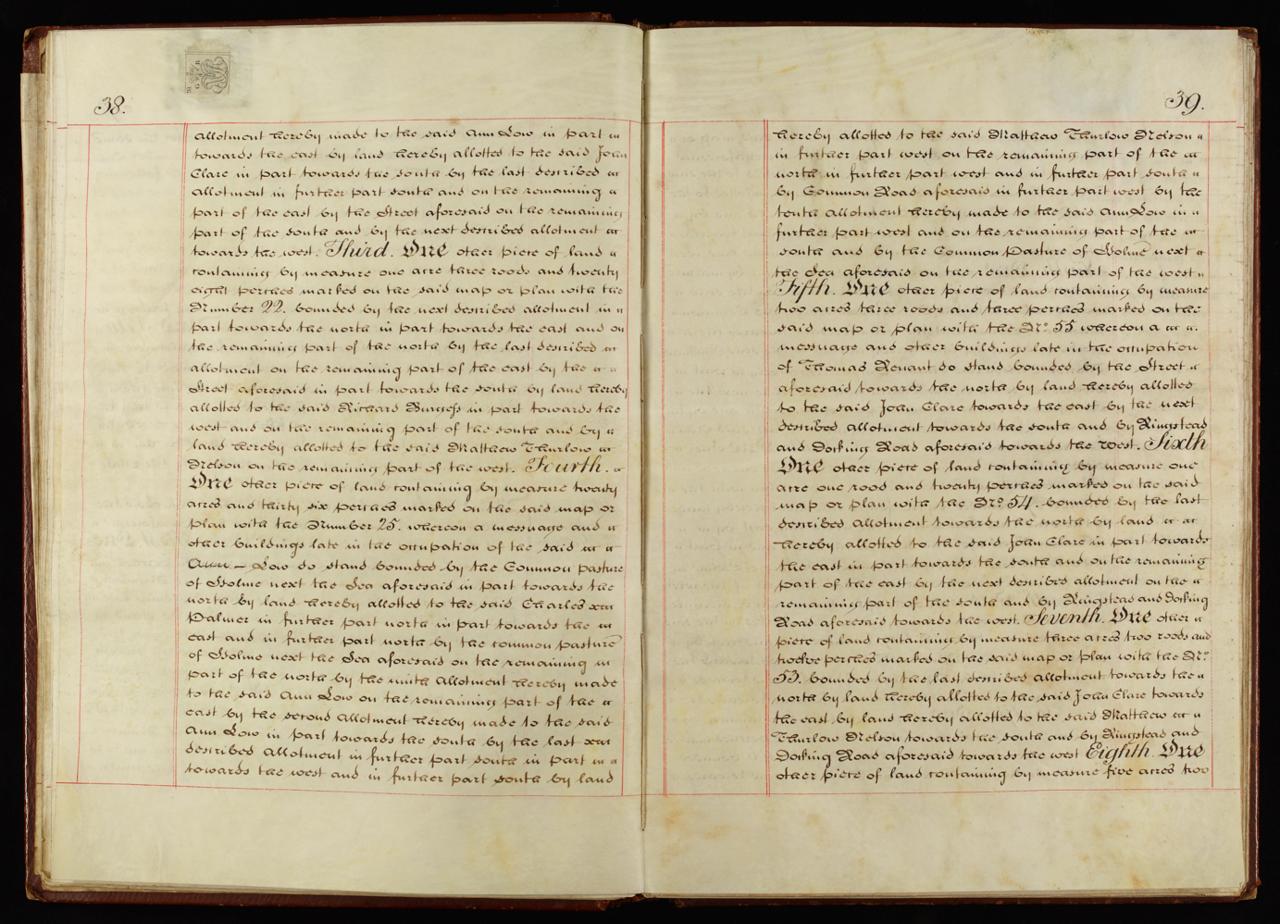 38.
allotment hereby made to the said Ann Low in part
towards the east by land hereby allotted to the said John
Clare in part towards the south by the last described
allotment in further part south and on the remaining
part of the east by the Street aforesaid on the remaining
part of the south and by the next described allotment
towards the west. Third. One other piece of land
containing by measure one acre three roods and twenty
eight perches marked on the said map or plan with the
Number 22. bounded by the next described allotment in
part towards the north in part towards the east and on
the remaining part of the north by the last described
allotment on the remaining part of the east by the
Street aforesaid in part towards the south by land hereby
allotted to the said Richard Burgess in part towards the
west and on the remaining part of the south and by
land hereby allotted to the said Matthew Thurlow
Nelson on the remaining part of the west. Fourth.
One other piece of land containing by measure twenty
acres and thirty six perches marked on the said map or
plan with the Number 25. whereon a messuage and
other buildings late in the occupation of the said
Ann Low do stand bounded by the Common pasture
of Holme next the Sea aforesaid in part towards the
north by land hereby allotted to the said Charles
Palmer in further part north in part towards the
east and in further part north by the common pasture
of Holme next the Sea aforesaid on the remaining
part of the north by the ninth allotment hereby made
to the said Ann Low on the remaining part of the
east by the second allotment hereby made to the said
Ann Low in part towards the south by the last
described allotment in further part south in part
towards the west and in further part south by land
39.
hereby allotted to the said Matthew Thurlow Nelson
in further part west on the remaining part of the
north in further part west and in further part south
by Common Road aforesaid in further part west by the
tenth allotment hereby made to the said Ann Low in
further part west and on the remaining part of the
south and by the Common Pasture of Holme next
the Sea aforesaid on the remaining part of the west
Fifth. One other piece of land containing by measure
two acres three roods and three perches marked on the
said map or plan with the No. 55 whereon a
messuage and other buildings late in the occupation
of Thomas Renant do stand bounded by the Street
aforesaid towards the north by land hereby allotted
to the said John Clare towards the east by the next
described allotment towards the south and by Ringstead
and Docking Road aforesaid towards the west. Sixth
One other piece of land containing by measure one
acre one rood and twenty perches marked on the said
map or plan with the No. 54. bounded by the last
described allotment towards the north by land
hereby allotted to the said John Clare in part towards
the east in part towards the south and on the remaining
part of the east by the next described allotment on the
remaining part of the south and by Ringstead and Docking
Road aforesaid towards the west. Seventh. One other
piece of land containing by measure three acres two roods and
twelve perches marked on the said map or plan with the No.
53. bounded by the last described allotment towards the
north by land hereby allotted to the said John Clare towards
the east by land hereby allotted to the said Matthew
Thurlow Nelson towards the south and by Ringstead and
Docking Road aforesaid towards the west Eighth. One
other piece of land containing by measure five acres two